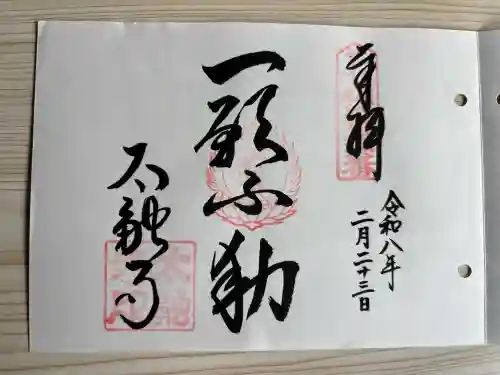 奉拝
令和八年
二月二十三日
一願不動
太融寺